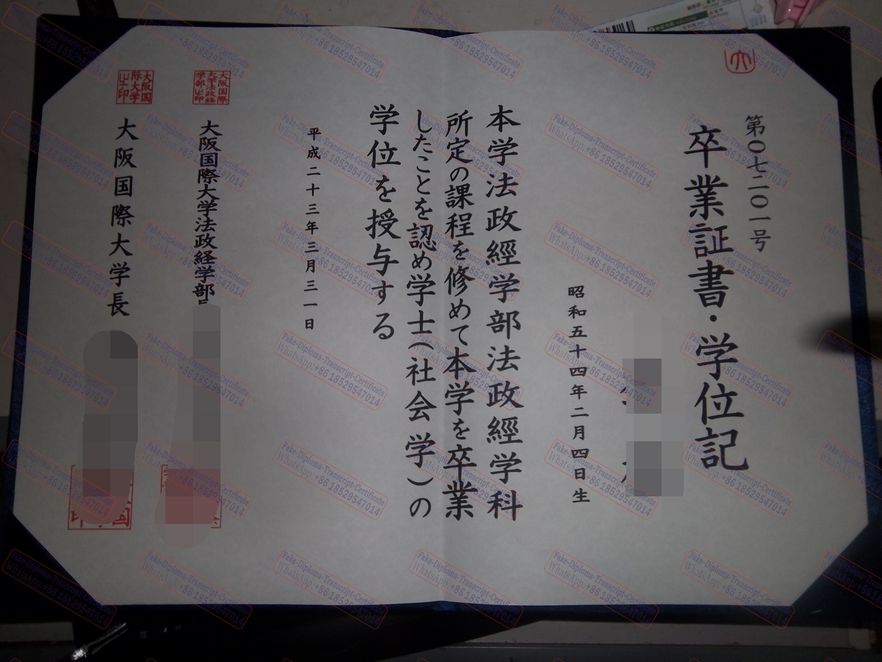 第〇七二〇一号
卒業証書・学位記
昭和五十四年二月四日生
本学法政經学部法政經学科
所定の課程を修めて本学を卒業
したことを認め学士(社会学)の
学位を授与する
平成二十三年三月三一日
大阪国際大学法政経学部
大阪国際大学長
大阪国
際大学
之印
Fake-Diploma-Transcript-Certificate
WhatsApp:+86 18529547014